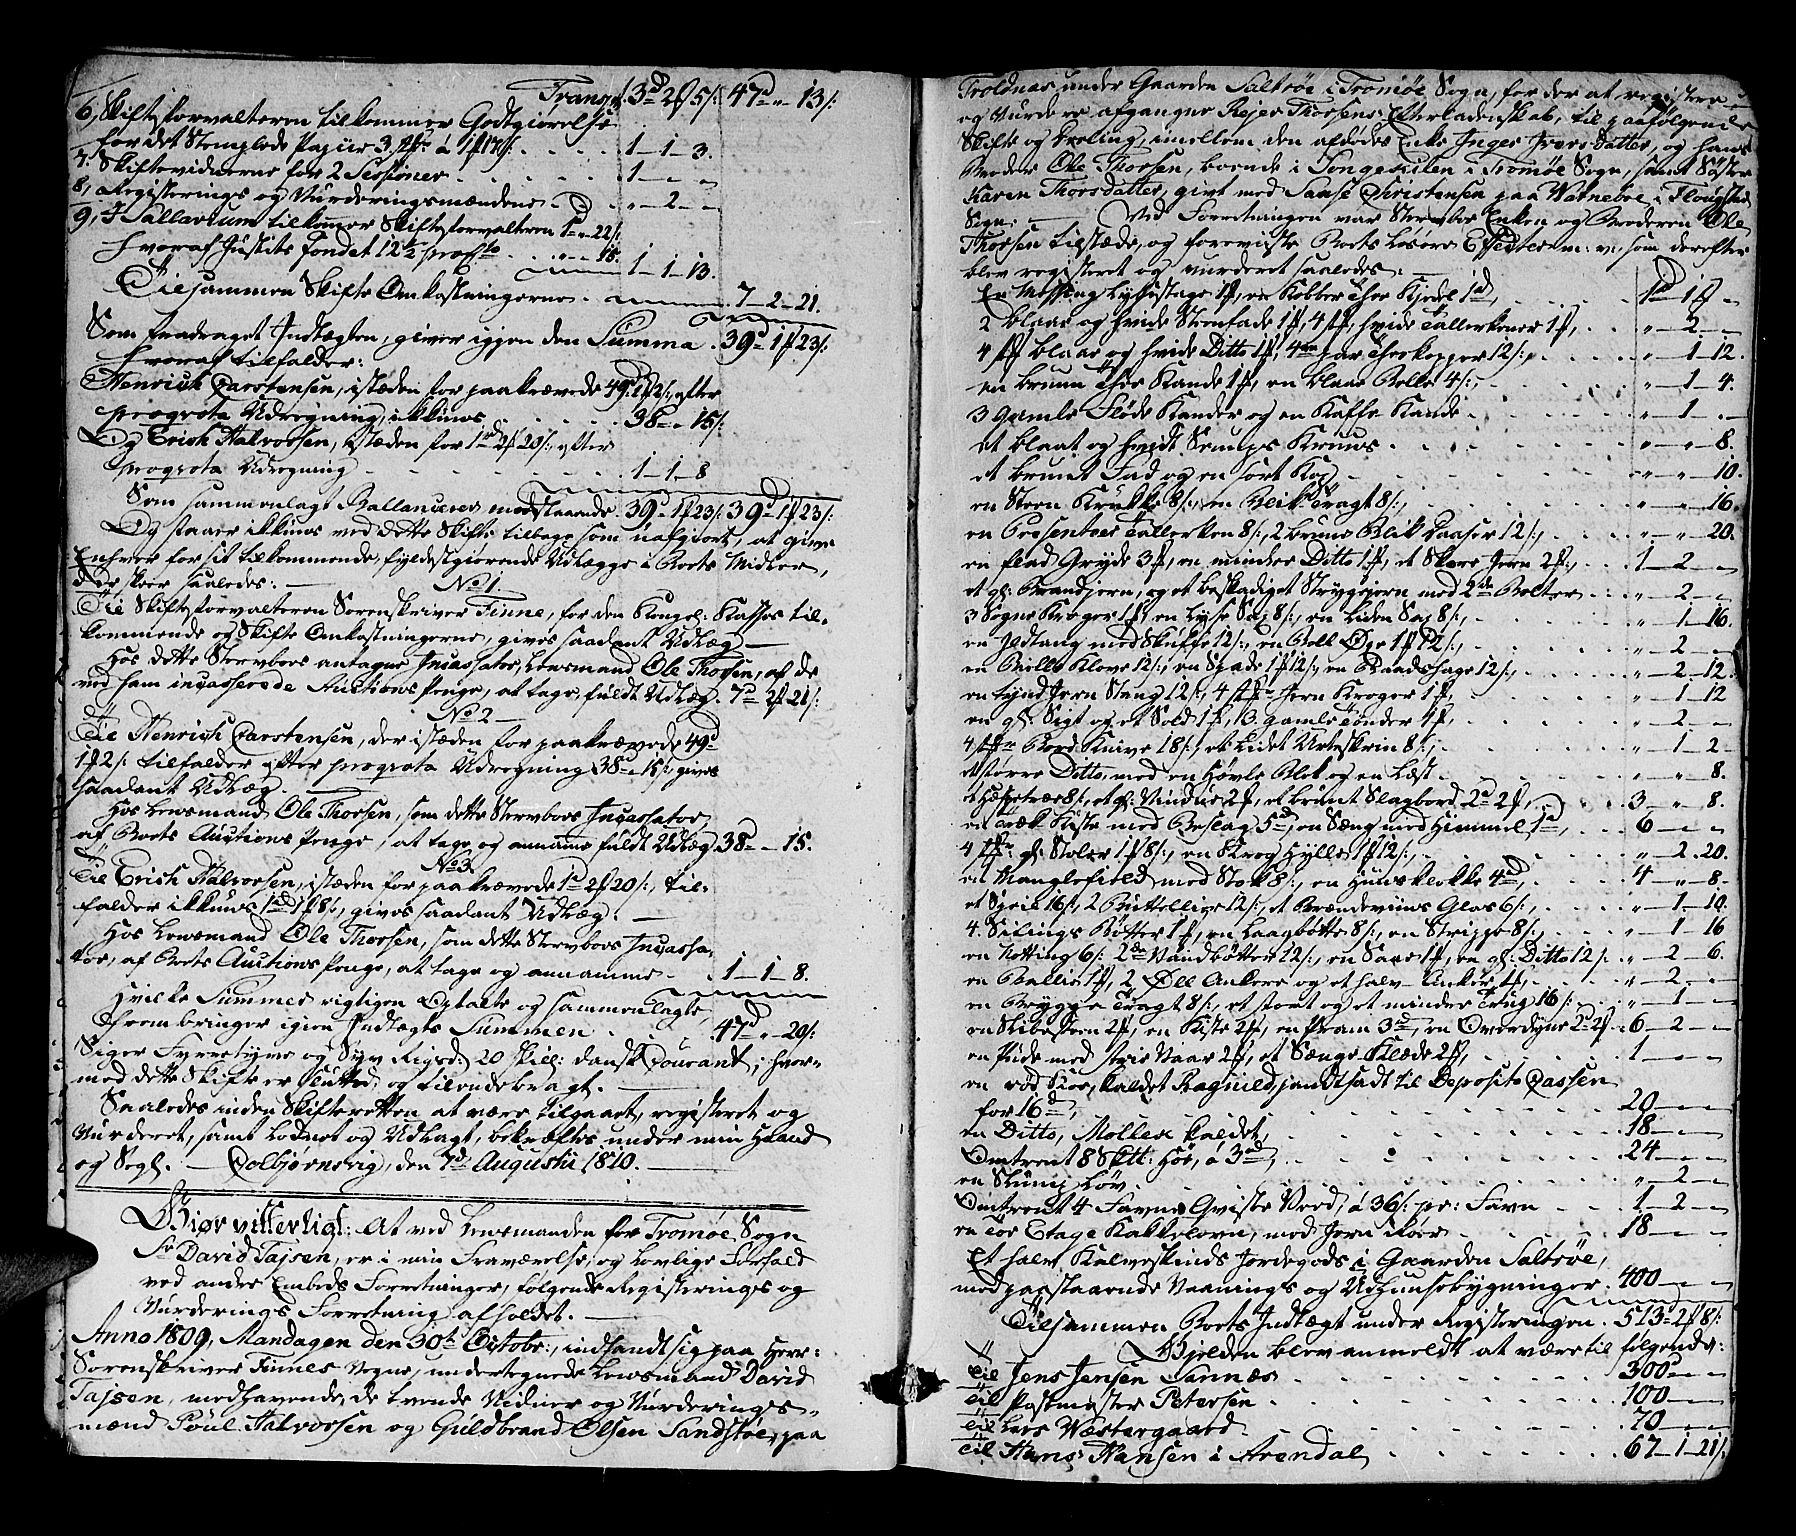 Transp. 3d 2f 5/: 47d „ 13/:
6, Skiftsforvalteren tilkommer Godtgiørelse
for det Stemplede Papiir 3 st. á 1f 17/: 1-1-3.
7. Skiftevidnerne for 2 Sessioner 1 „ „
8, Registerings og Vurderingsmændene „ 2 „
9, I Sallarium tilkomer Skiftsforvalteren 1d „ 22/:
hvoraf Justits Fondet 12½ pro „ 15. 1-1-13.
Tilsammen Skifte Omkostningerne 7-2-21.
Som fradraget Indtægten, giver igjen den Summa 39d 1f 23/:
hvoraf tilfalder:
Henrich Carstensen, istæden for paakrævede 49d 1f 2/: efter
pro qvota Udregning, ikkuns 38 „ 15/:
Og Erich Halvorsen, istæden for 1d 2f 20/: efter
pro qvota Udregning 1-1-8
Som sammenlagt Ballancerer modstaaende 39d 1f 23/: 39d 1f 23/:
Og staaer ikkuns ved dette Skifte tilbage som uafgiort, at give
Enhver for sit tilkommende, fyldestgiørende Udlægge i Boets Midler,
der skeer saaledes: No 1.
Til Skiftsforvalteren Sorenskriver Finne, for den Kongel: Kasses til-
kommende og Skifte Omkostningerne, gives saadant Udlæg
Hos dette Stervboes antagne Incassator, Lensmand Ole Thorsen, af de
ved ham incasserede Auctions Penge, at tage fuldt Udlæg 7d 2f 21/:
No 2
Til Henrich Carstensen, der istæden for paakrævede 49d
1f 2/: tilfalder efter pro qvota Udregning 38d „ 15/: gives
saadant Udlæg.
Hos Lensmand Ole Thorsen, som dette Stervboes Incassator,
af Boets Auctions Penge, at tage og annamme fuldt Udlæg 38 „ 15.
No 3
Til Erich Halvorsen, istæden for paakrævede 1d 2f 20/:, til-
falder ikkuns 1d 1f 8/:, gives saadant Udlæg.
Hos Lensmand Ole Thorsen, som dette Stervboes Incassa-
tor, af Boets Auctions Penge, at tage og annamme 1-1-8.
Hvilke Summer rigtigen optalte og sammenlagte,
frembringer igien Indtægts Summen 47d „ 20/:
Siger Fyrretyve og Syv Rigsd: 20 skill: dansk Courant; hvor-
med dette Skifte er sluttet og tilendebragt.
Saaledes inden Skifteretten at være tilgaaet, registeret og
Vurderet, samt Lodnet og Udlagt, bekræftes under min Haand
og Segl. Colbjørnsvig, den 7d Augustii 1810.
Giør vitterligt: At ved Lensmanden for Tromøe Sogn
Sr David Tajsen, er i min Fraværelse, og Lovlige Forfald
ved andre Embeds Forretninger, følgende Registerings og
Vurderings Forretning afholdet.
Anno 1809, Mandagen den 30te Octobr:, indfandt sig paa Herr:
Sorenskriver Finnes vegne, undertegnede Lensmand David
Tajsen, medhavende, de tvende Vidner og Vurderings-
mænd Poul Halvorsen og Guldbrand Olsen Sandstøe, paa
Troldnæs under Gaarden Saltrøe i Tromøe Sogn, for der at registere
og Vurdere afgangne Rejer Thorsens Efterladenskab, til paafølgende
Skifte og Deeling, imellem den afdødes Enke Inger Iversdatter, og hans
Broder Ole Thorsen, boende i Songekilen i Tromøe Sogn, samt Søster
Karen Thorsdatter, givt med Sansé Christensen paa Watneboe i Flougstad
Sogn: Ved Forretningen var Stervboe Enken og Broderen Ole
Thorsen tilstæde, og foreviiste Boets Løsøre Effecter m: v: som derefter
blev registeret og vurderet saaledes:
En Messing Lysestage 1f, en Kobber Thee Kjedel 1d, 1d 1f „
2 blaae og hvide Steenfade 1f, 4 st. hvide Tallerkener 1f, „ 2 „
4 st blaae og hvide Ditto 1f, 4re par Theekopper 12/: „ 1-12.
en bruun Thee Kande 1f, en blaae Bolle 4/:, „ 1-4.
3 gamle Fløde Kander og en Kaffe Kande „ 1 „
et blaat og hvidt Semps Kruus „ „ 8.
et bruunt Fad og en sort Kop „ „ 10.
en Steen Krukke 8/:, en Blik Tragt 8/:, „ „ 16.
en Presenteer Tallerken 8/:, 2 brune Blik Daaser 12/:, „ „ 20.
en flad Gryde 3f, en mindre Ditto 1f, et Skære Jern 2f, 1-2 „
et gl: Brandjern, og et beskadiget Strygejern med 2de Bolter „ 2 „
3 Sogne Kroger 1f, en Lyse Sax 8/:, en Liden Sax 8/:, „ 1-16.
en Ildtang med Skuffe 12/:, en Boll Øxe 1f 12/:, „ 2 „
en Bielke Klove 12/:, en Spade 1f 12/:, en Braadshage 12/:, „ 2-12.
en tynd Jern Stang 12/:, 4 st. Jern Kroger 1f, „ 1-12
en gl: Sigt og et Sold 1f, 13 gamle Tønder 1f, „ 2 „
4 st. Bord Knive 18/:, et Lidet Urteskrin 8/:, „ 1-2
et større Ditto, med en Høvle Blok og en Læst „ „ 8.
et Haspetræe 8/:, et gl: Vindue 2f, et bruunt Slagbord 2d 2f, 3 „ 8.
en Træk Kiste med Beslag 5d, en Sæng med Himmel 1d, 6 „ „
4 st. gl: Stoler 1f 8/:, en Krog Hylle 1f 12/:, „ 2-20.
en Manglefield med Stok 8/:, en Huus Klokke 4d, 4 „ 8.
et Speil 16/:, 2 Buttellier 12/:, et Brændeviins Glas 6/:, „ 1-10.
4 Silings Bøtter 1f, en Laagbøtte 8/:, en Strippe 8/:, „ 1-16
en Notting 6/: 2de Vandbøtter 12/:, en Saae 1f, en gl: Ditto 12/: „ 2-6.
en Ballie 1f, 2 Øll Ankere og et halv Anker 1f, „ 2 „
en Brygge Tragt 8/:, et stort og et mindre Trug 16/: „ 1 „
en Slibesteen 2f, en Kiste 2f, en Pram 3d, en Overdyne 2d 2f 6-2 „
en Pude med stribet Vaar 2f, et Sænge Klæde 2f, 1 „ „
en rød Koe, kaldet Ragnild, pandtsadt til Deposito Cassen
for 16d, 20 „ „
en Ditto, Molker kaldet, 18 „ „
Omtrent 8 Sktt: Høe, á 3d, 24 „ „
en Slump Løv „ 2 „
Omtrent 4 Favne Qviste Veed, á 36/: pr: Favn 1-2 „
en Toe Etage Kakkelovn, med Jern Rør 18 „
Et halv Kalveskinds Jordegods i Gaarden Saltrøe,
med paastaaende Vaanings og Udhuusebygninger 400 „ „
Tilsammen Boets Indtægt under Registeringen 513-2f 8/:
Gjelden blev anmeldt at være til følgende:
Til Jens Jensen Sannæs 300d „
Til Postmester Petersen 100 „
Til Lars Westergaard 70 „ „
Til Hans Hansen i Arendal 67-1-21/: